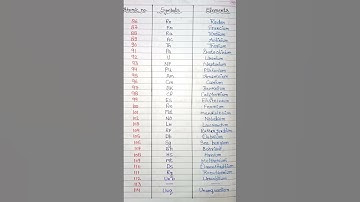 Atomic no. Symbols Elements
86 Rn Radon
87 Fr Francium
88 Ra Radium
89 Ac Actinium
90 Th Thorium
91 Pa Protactinium
92 U Uranium
93 NP Neptunium
94 Pu Plutonium
95 Am Americium
96 Cm Curium
97 BK Berkelium
98 CF Californium
99 Es Einsteinium
100 Fm Fermium
101 Md Mendelevium
102 No Nobelium
103 Lr
104 RF
105 Db Dubnium
106 Sg Sea borgium
107 Bh Bohrium
108 HS Hassium
109 Mt Meitnerium
110 Ds
111 Rg
112 Uub Ununbium
113
114 Uuq Ununquadium